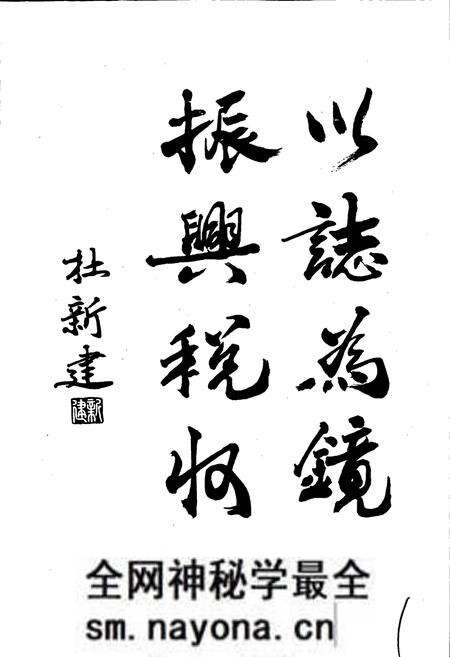 以誌為鏡
振興税收
杜新建
新建
全网神秘学最全
sm.nayona.cn